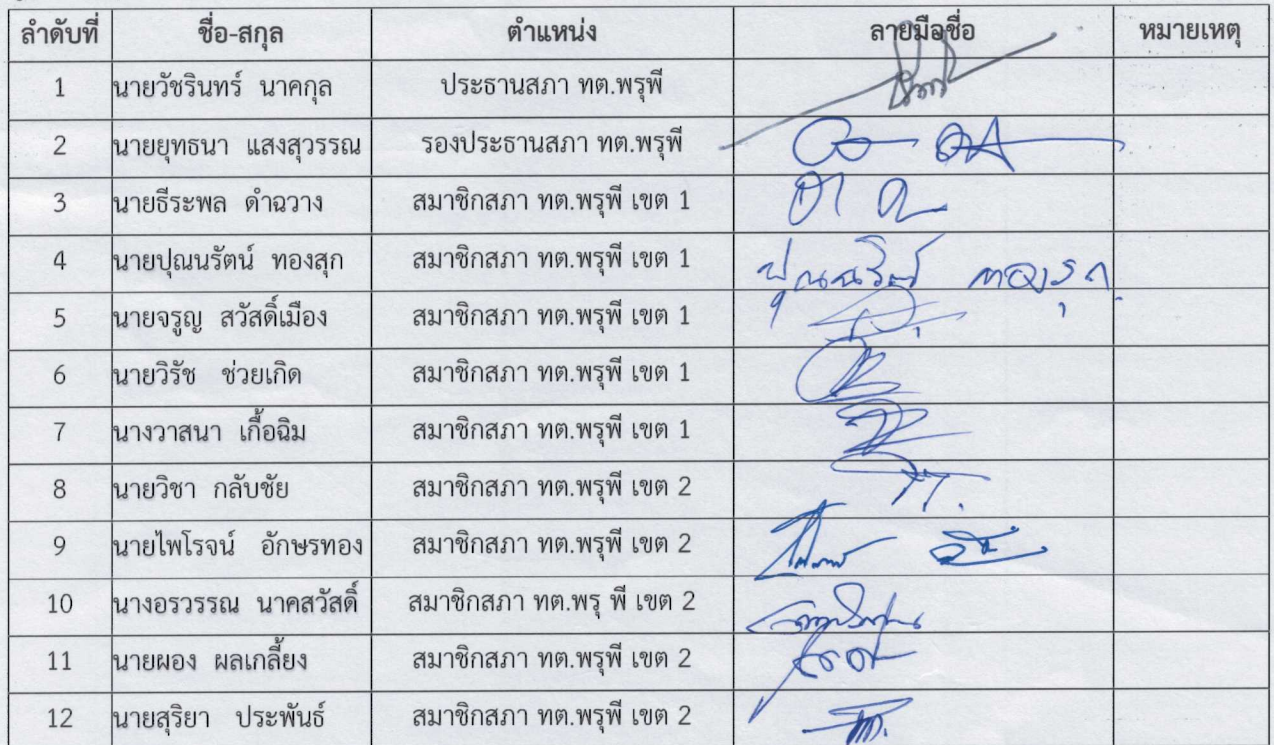 ลำดับที่ ชื่อ-สกุล ตำแหน่ง ลายมือชื่อ หมายเหตุ
1 นายวัชรินทร์ นาคกุล ประธานสภา ทต.พรุพี
2 นายยุทธนา แสงสุวรรณ รองประธานสภา ทต.พรุพี
3 นายธีระพล ดำฉวาง สมาชิกสภา ทต.พรุพี เขต 1
4 นายปุณนรัตน์ ทองสุก สมาชิกสภา ทต.พรุพี เขต 1 ปุณณรัตน์ ทองสุก
5 นายจรูญ สวัสดิ์เมือง สมาชิกสภา ทต.พรุพี เขต 1
6 นายวิรัช ช่วยเกิด สมาชิกสภา ทต.พรุพี เขต 1
7 นางวาสนา เกื้อฉิม สมาชิกสภา ทต.พรุพี เขต 1
8 นายวิชา กลับชัย สมาชิกสภา ทต.พรุพี เขต 2
9 นายไพโรจน์ อักษรทอง สมาชิกสภา ทต.พรุพี เขต 2
10 นางอรวรรณ นาคสวัสดิ์ สมาชิกสภา ทต.พรุ พี เขต 2
11 นายผอง ผลเกลี้ยง สมาชิกสภา ทต.พรุพี เขต 2
12 นายสุริยา ประพันธ์ สมาชิกสภา ทต.พรุพี เขต 2